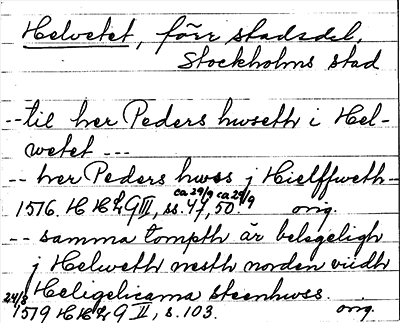 Helvetet, förr stadsdel,
Stockholms stad
-- til her Peders hwseth i Hel-
wetet ---
-- her Peders hwss j Hielffweth--
ca 29/9 ca 29/9
1576. H H L G III, ss. 47, 50. orig.
-- samma tompth är belegeligh
j Helweth nesth norden widh
Heligelicama steenhwss.
24/8
1579 H H L G II, s. 103. orig.